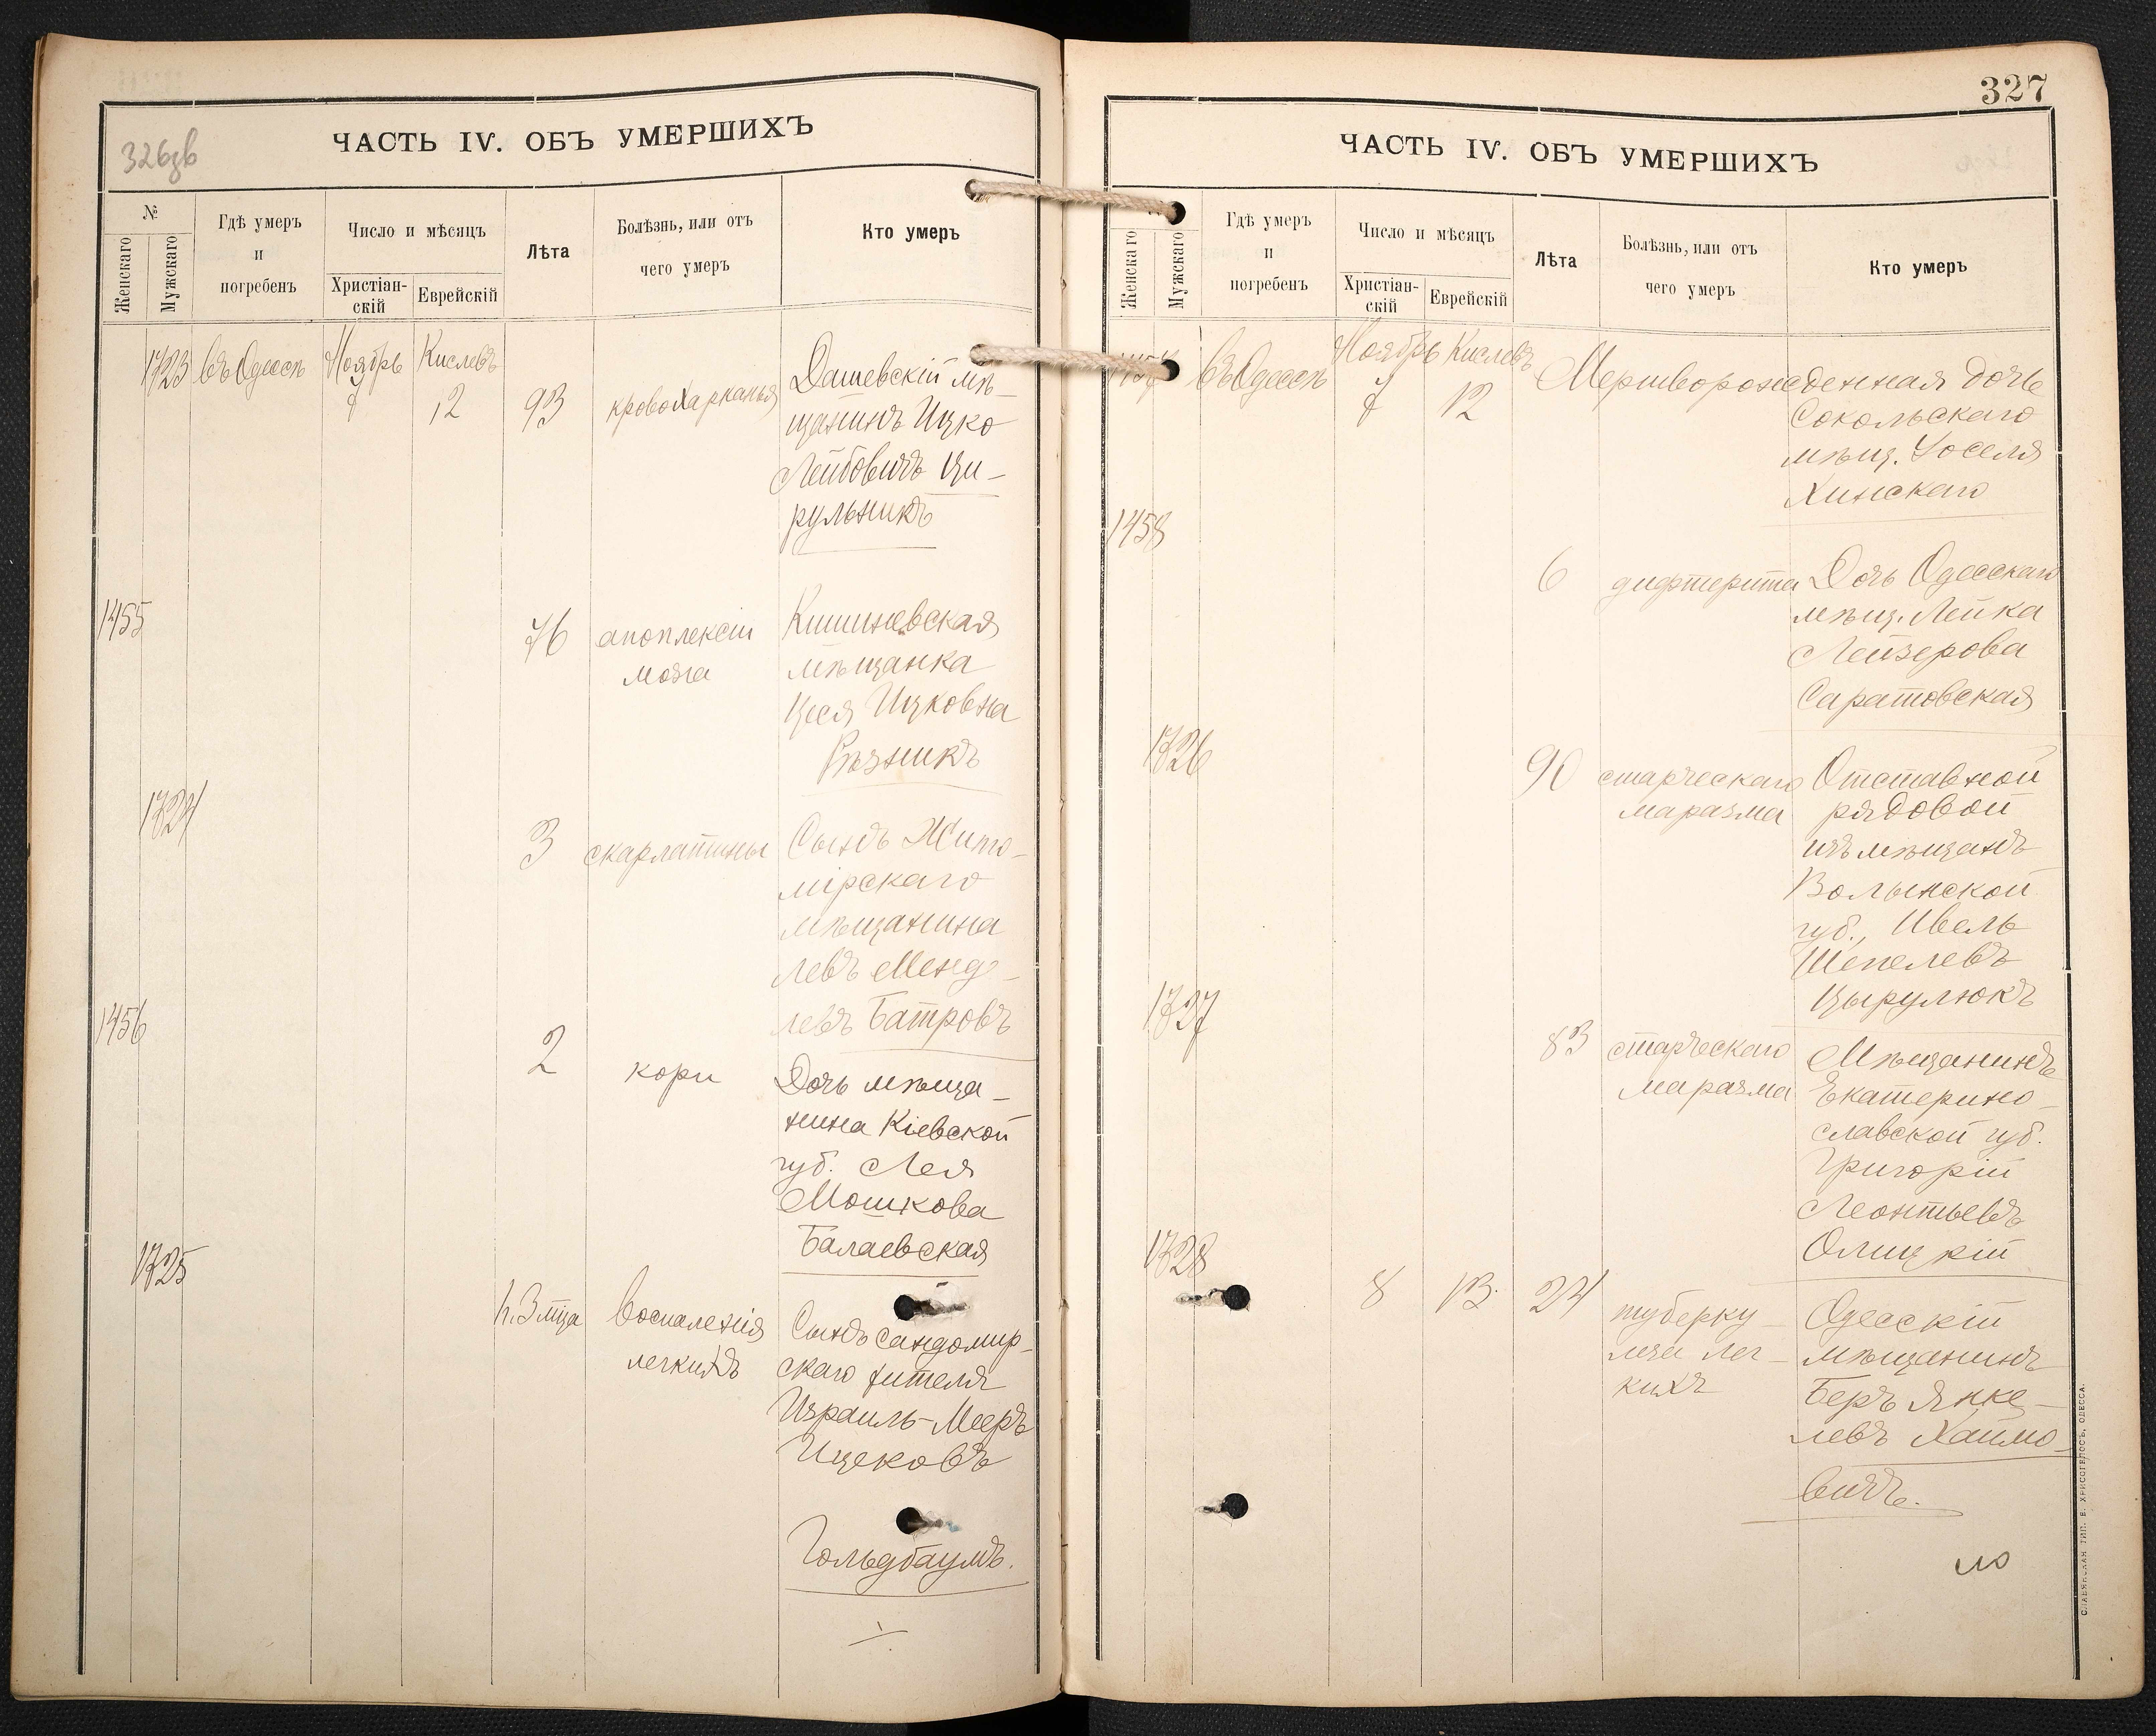 326зв
ЧАСТЬ IV. ОБЪ УМЕРШИХЪ
№
Женскаго
Мужскаго
Гдѣ умеръ
и
погребенъ
Число и мѣсяцъ
Христіан-
скій
Еврейскій
Лѣта
Болѣзнь, или отъ
чего умеръ
Кто умеръ
1723 въ Одессѣ Ноябрь Кислевъ
7 12 93 кровохарканья Дашевскій мѣ-
щанинъ Ицко
Лейбовичъ Ци-
рульникъ
1455
76 апоплексіи Кишиневская
мозга мѣщанка
Цеся Ицковна
Рѣзникъ
1724
3 скарлатины Сынъ Жито-
мірскаго
мѣщанина
Левъ Менде-
левъ Батровъ
1456
2 кори Дочь мѣща-
нина Кіевской
губ. Лея
Мошкова
Балаевская
1725
1 г. 3 мѣца воспаленія Сынъ Сандомир-
легкихъ скаго жителя
Израиль-Мееръ
Ицековъ
Гольдбаумъ.
327
ЧАСТЬ IV. ОБЪ УМЕРШИХЪ
Женскаго
Мужскаго
Гдѣ умеръ
и
погребенъ
Число и мѣсяцъ
Христіан-
скій
Еврейскій
Лѣта
Болѣзнь, или отъ
чего умеръ
Кто умеръ
1457 въ Одессѣ Ноябрь Кислевъ
7 12 Мертворожденная дочь
Сокольскаго
мѣщ. Іоселя
Хинскаго
1458
6 дифтерита Дочь Одесскаго
мѣщ. Лейка
Лейзерова
Саратовская
1726
90 старческаго Отставной
маразма рядовой
изъ мѣщанъ
Волынской
губ., Ивель
Шепелевъ
Цырулюкъ
1727
83 старческаго Мѣщанинъ
маразма Екатерино-
славской губ.
Григорій
Леонтьевъ
Олицкій
1728
8 13. 24 туберку- Одесскій
леза лег- мѣщанинъ
кихъ Беръ Янке-
левъ Хаймо-
вичъ.
СЛАВЯНСКАЯ ТИП. Е. ХРИСОГЕЛОСЪ, ОДЕССА.